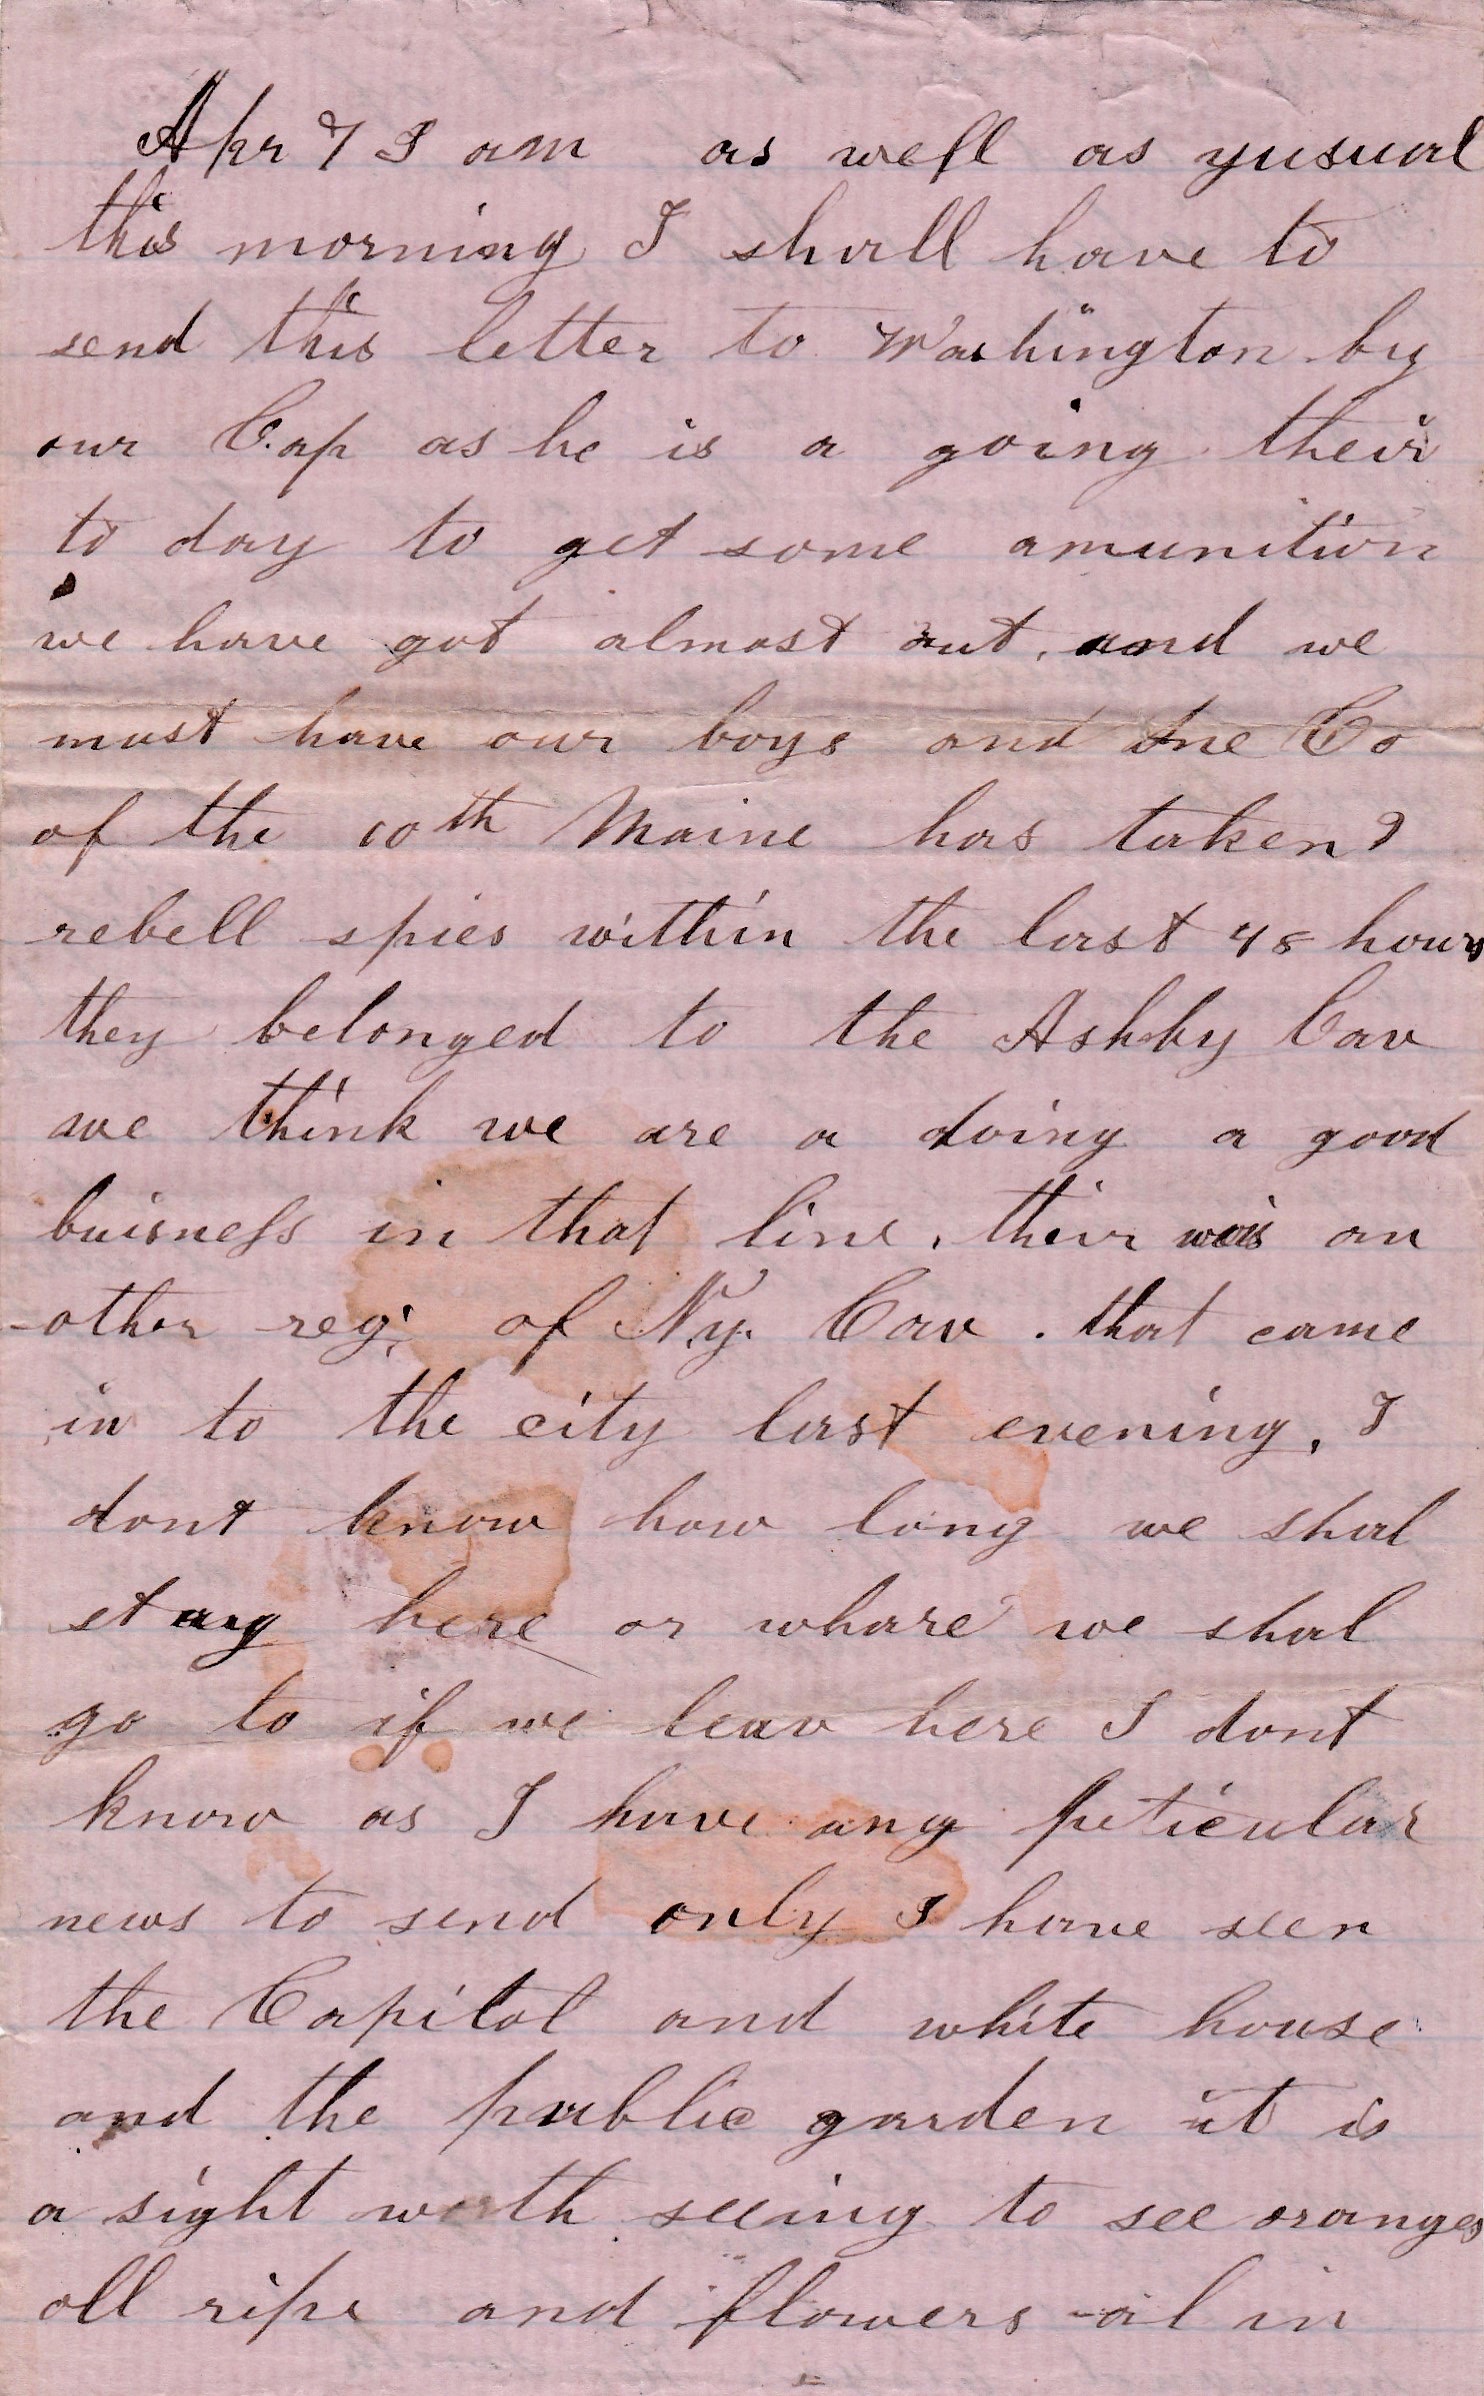 Apr 7 I am as well as yusual
this morning I shall have to
send this letter to Washington by
our Cap as he is a going their
to day to get some amunition
we have got almost out, and we
must have our boys and one Co
of the 10th Maine has taken 9
rebell spies within the last 48 hours
they belonged to the Ashby Cav
we think we are a doing a good
buisness in that line, their was an
other reg; of N.y. Cav. that came
in to the city last evening, I
dont know how long we shal
stay here or whare we shal
go to if we leav here I dont
know as I have any peticular
news to send only I have seen
the Capitol and white house
and the public garden it is
a sight worth seeing to see oranges
all ripe and flowers al in